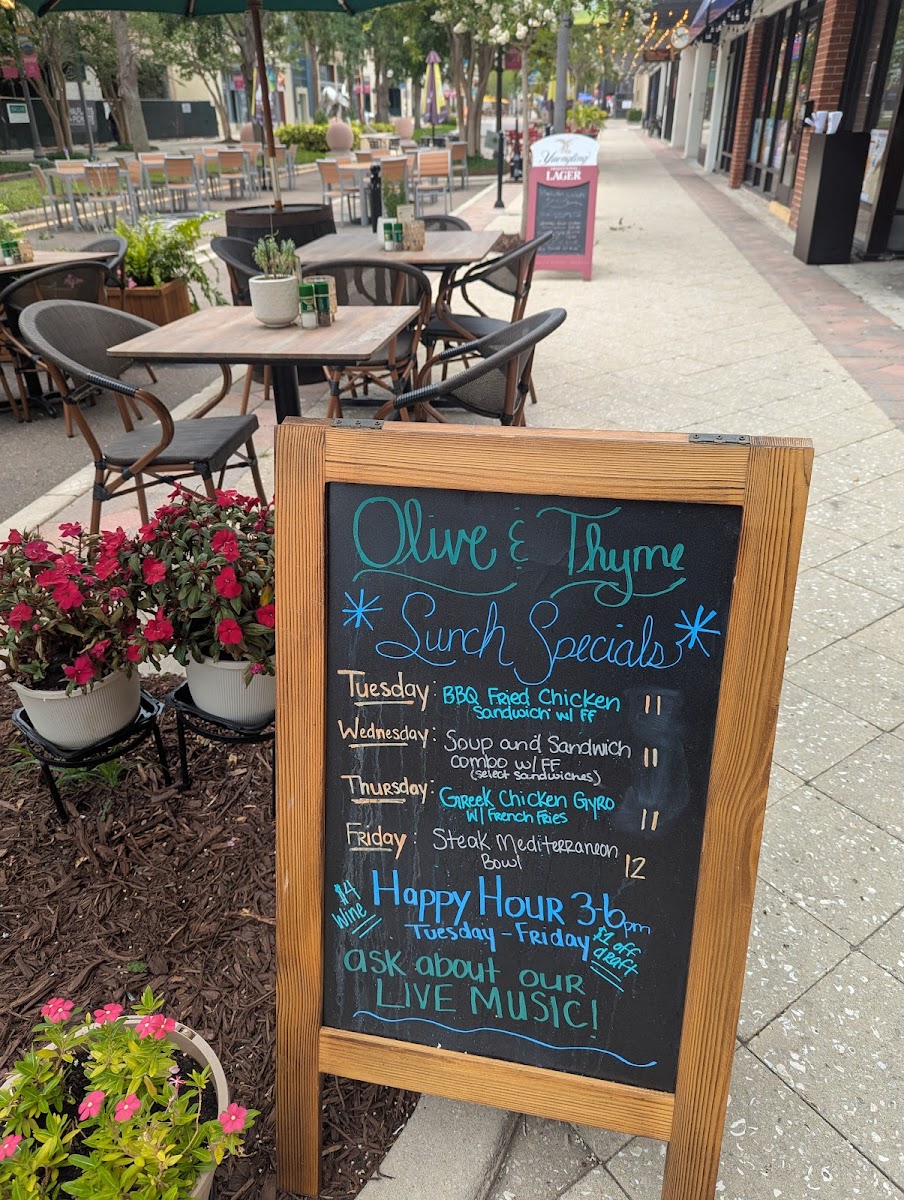 Yuengling
LAGER
Olive & Thyme
* Lunch Specials *
Tuesday: BBQ Fried Chicken 11
Sandwich w/ FF
Wednesday: Soup and Sandwich 11
combo w/ FF
(select sandwiches)
Thursday: Greek Chicken Gyro 11
w/ French Fries
Friday: Steak Mediterranean 12
Bowl
$4 Wine
Happy Hour 3-6pm
Tuesday - Friday
$1 off
draft
ask about our
LIVE MUSIC!